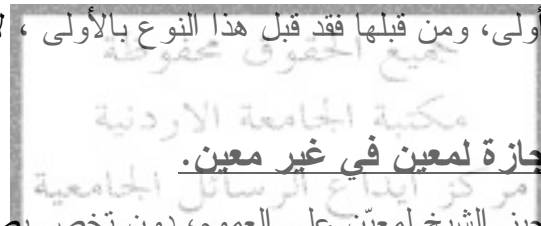 أولى، ومن قبلها فقد قبل هذا النوع بالأولى ،
جميع الحقوق محفوظة
مكتبة الجامعة الاردنية
جازة لمعين في غير معين.
مركز ايداع الرسائل الجامعية
الشيخ لمعيّن على العموم، دون